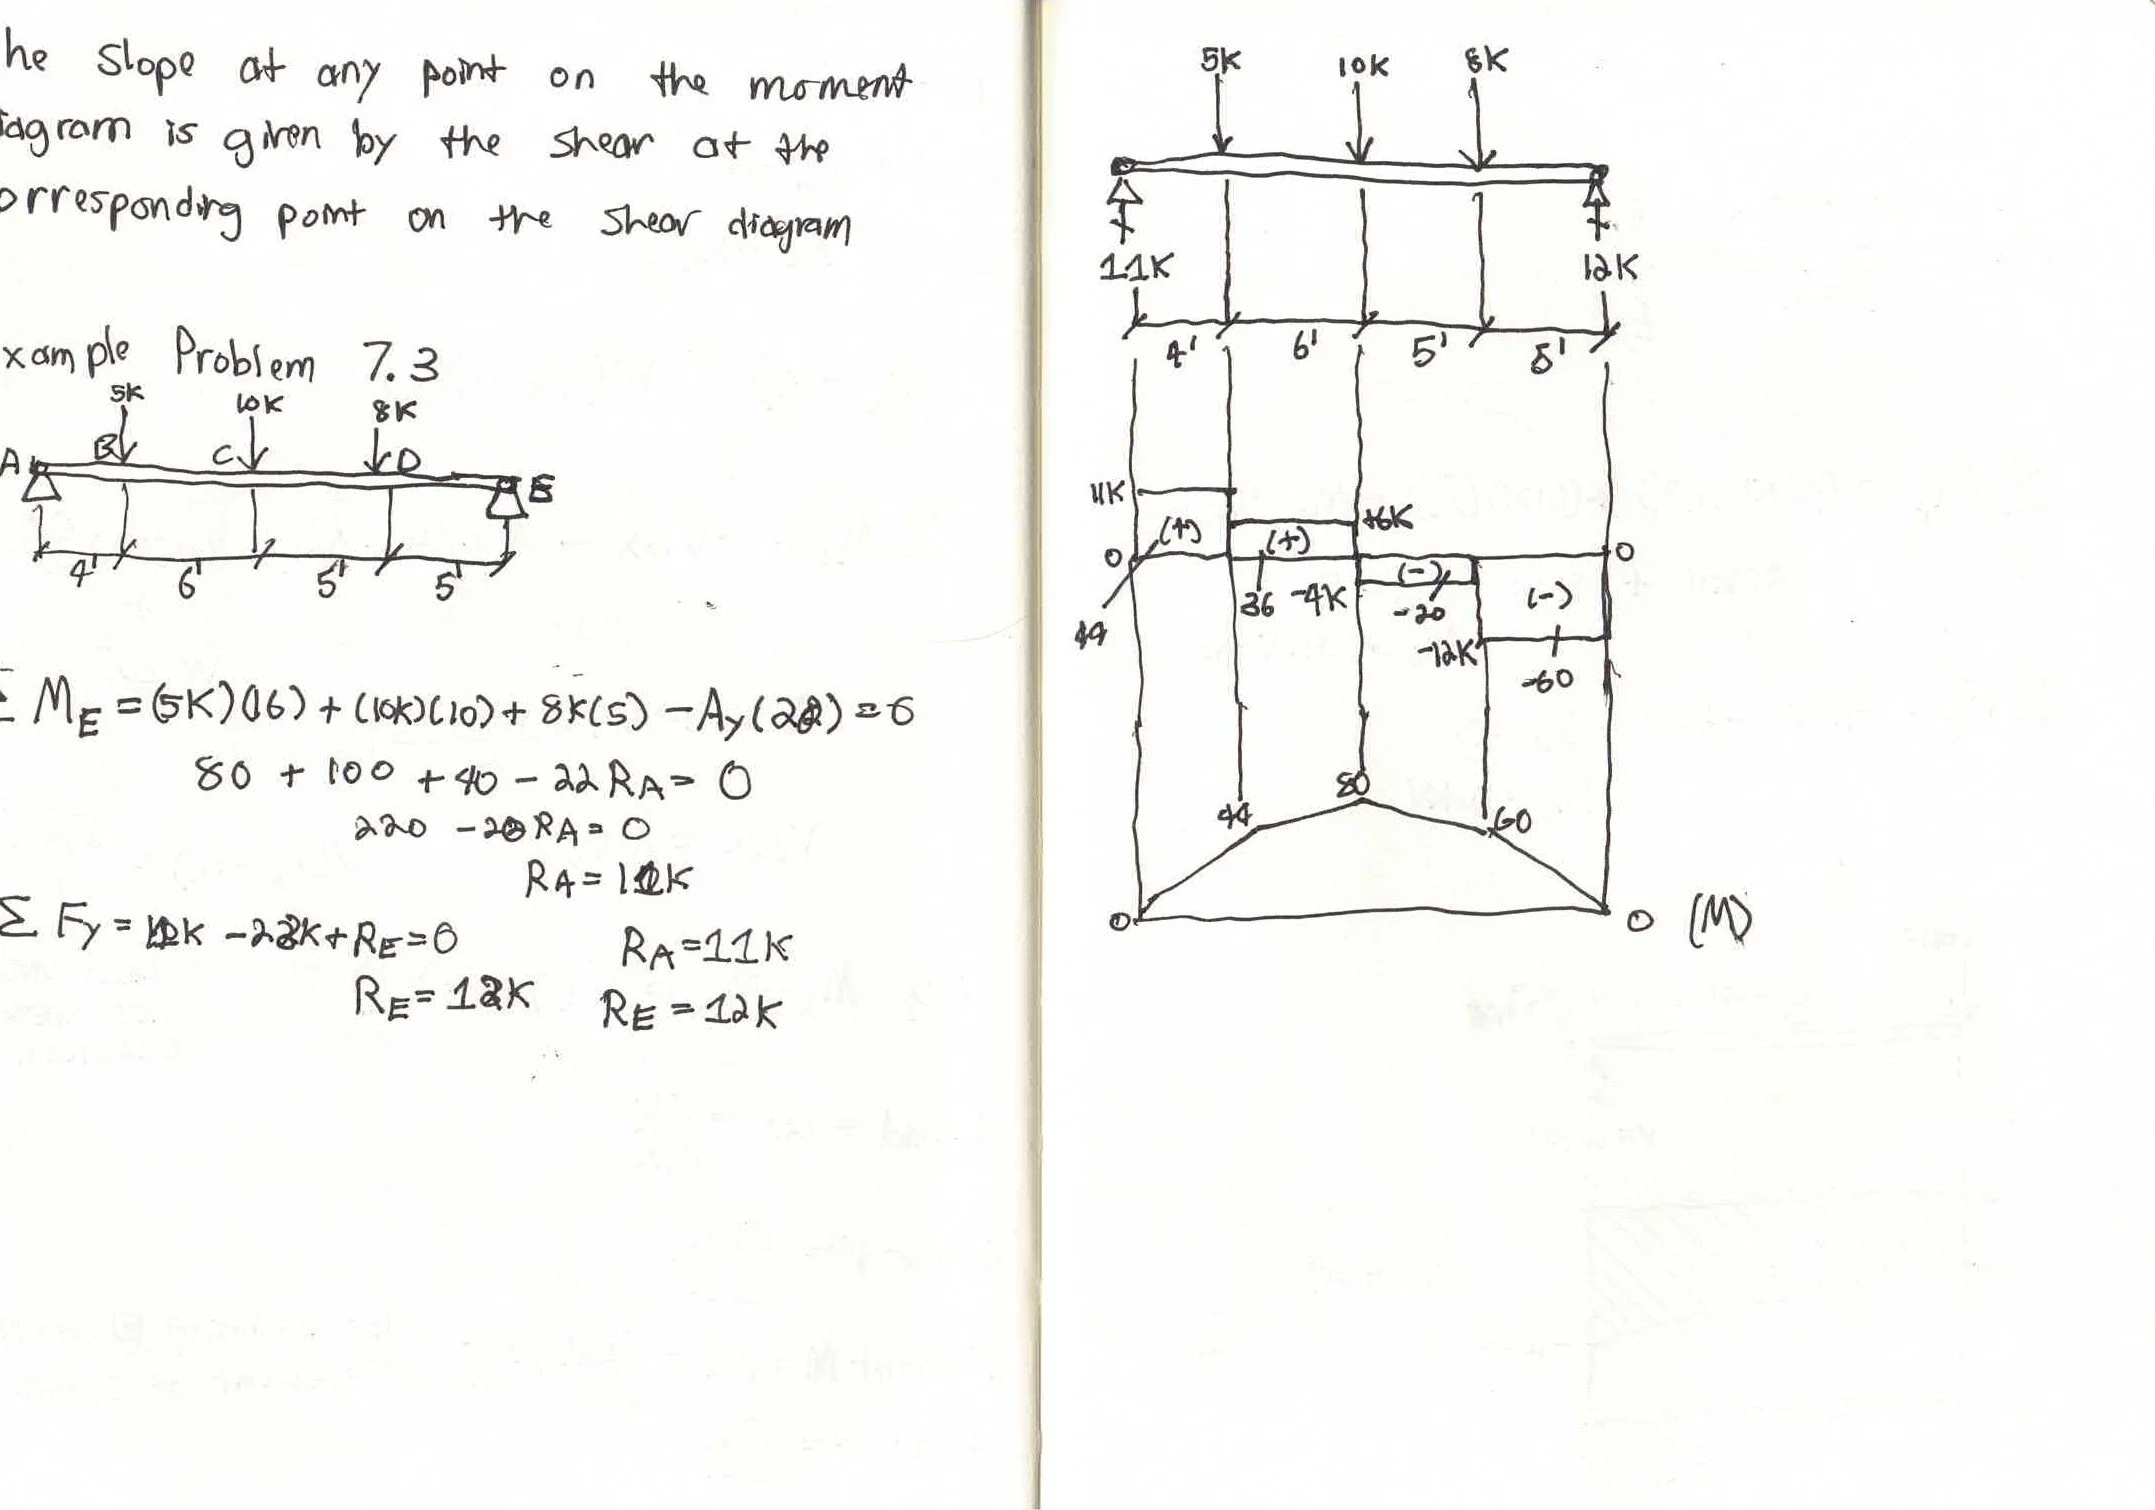 he slope at any point on the moment
iagram is given by the shear at the
orresponding point on the shear diagram
xample Problem 7.3
5K 10K 8K
A B C D E
4' 6' 5' 5'
Σ ME = (5K)(16) + (10K)(10) + 8K(5) - Ay(20) = 0
80 + 100 + 40 - 22 RA = 0
220 - 20 RA = 0
RA = 11K
Σ Fy = 11K - 23K + RE = 0
RA = 11K
RE = 12K
RE = 12K
5K 10K 8K
11K 12K
4' 6' 5' 5'
11K
(+) +6K
0 (+) 0
(-) (-)
36 -4K -20
44
-12K
-60
80
44 60
0 0 (M)